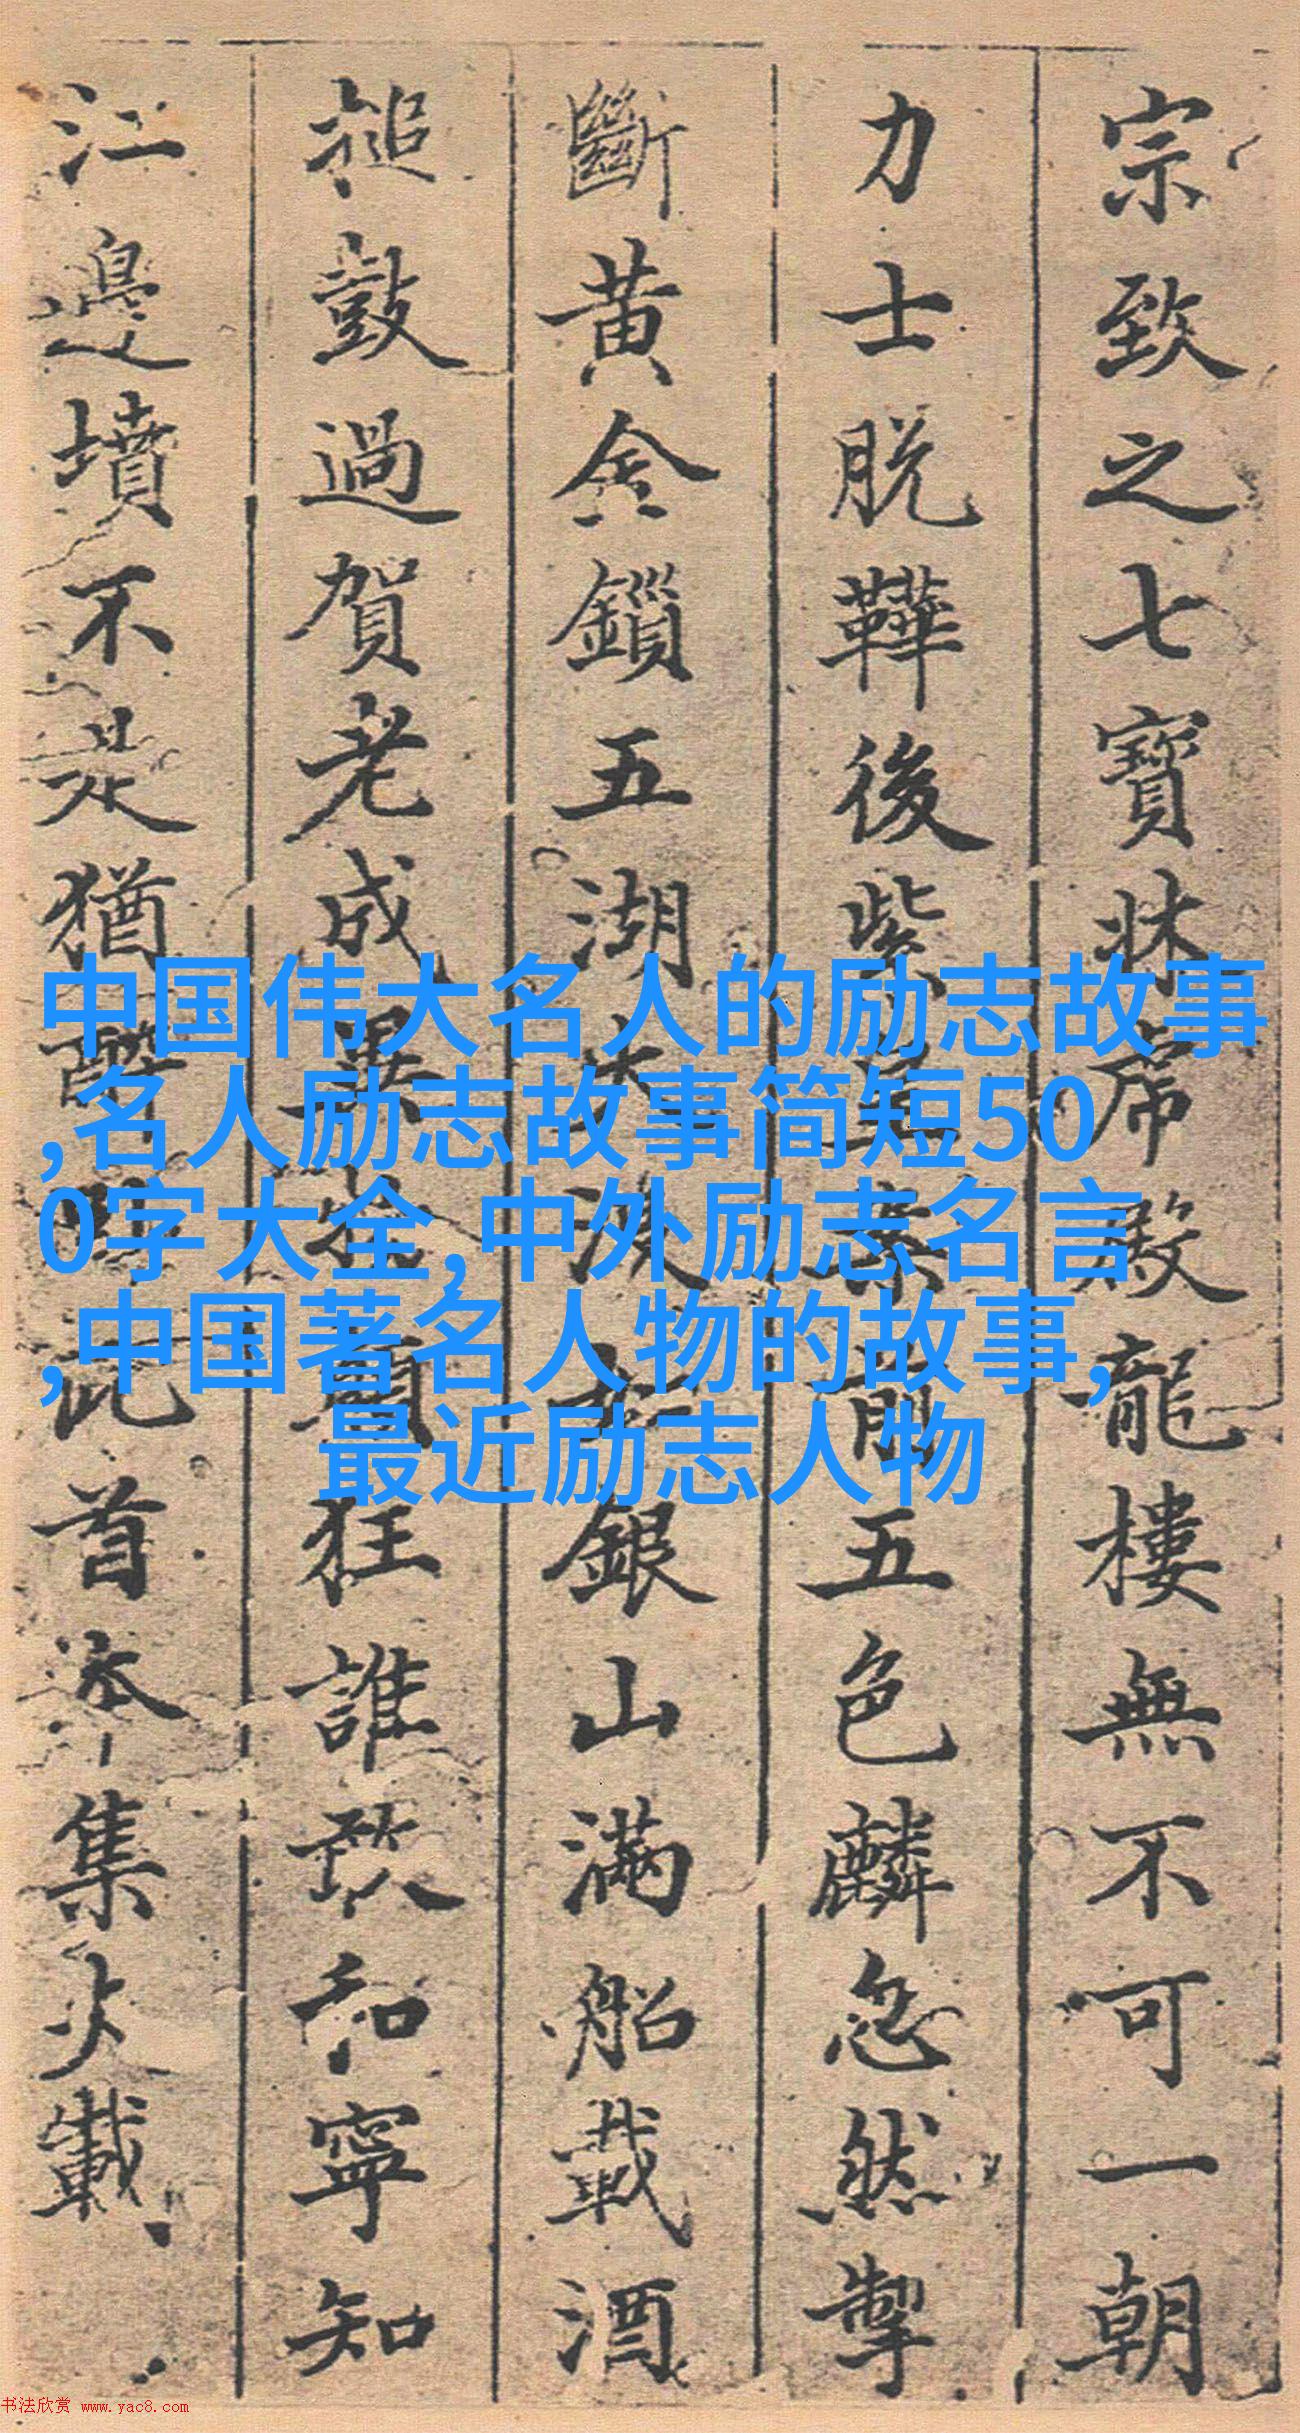 宗致之七寶牀虎殿龍樓無不可一朝
力士脫鞾後紫皇案前五色麟忽然掣
斷黃金鎖五湖大浪如銀山滿船載酒
搥鼓過賀老成異物顛狂誰敢和寧知
江邊墳不是猶醉臥此首本集少載
中国伟大名人的励志故事
,名人励志故事简短50
0字大全,中外励志名言
,中国著名人物的故事,
最近励志人物
书法欣赏 www.yac8.com